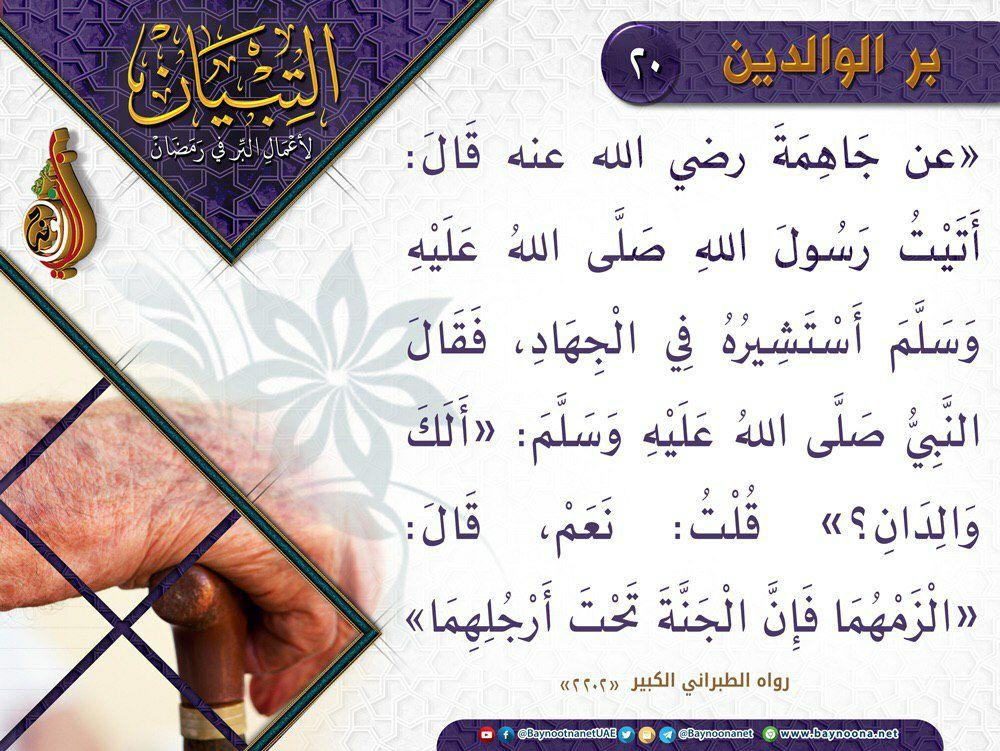 التِّبْيَان
لِأَعْمَالِ البِّرِ فِي رَمَضَانْ
بر الوالدين
٢٠
«عن جَاهِمَةَ رضي الله عنه قَالَ:
أَتَيْتُ رَسُولَ اللهِ صَلَّى اللهُ عَلَيْهِ
وَسَلَّمَ أَسْتَشِيرُهُ فِي الْجِهَادِ، فَقَالَ
النَّبِيُّ صَلَّى اللهُ عَلَيْهِ وَسَلَّمَ: «أَلَكَ
وَالِدَانِ؟» قُلْتُ: نَعَمْ، قَالَ:
«الْزَمْهُمَا فَإِنَّ الْجَنَّةَ تَحْتَ أَرْجُلِهِمَا»
رواه الطبراني الكبير «٢٢٠٢»
@BaynootnanetUAE @Baynoonanet www.baynoona.net